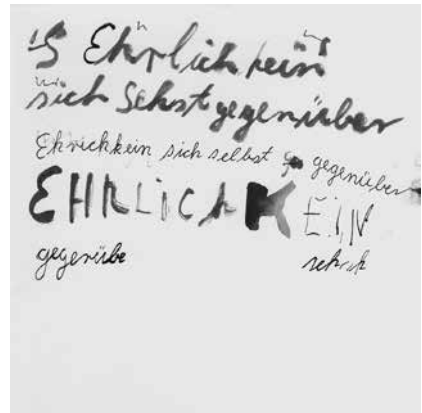 Ehrlich kein
sich Sehst gegenüber
Ehrichkein sich selbst gegenüber
EHRLICHKEIN
gegenübe